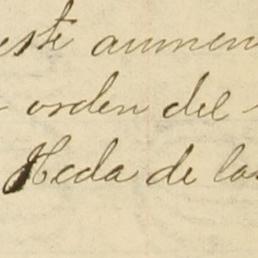 este aumen
orden del
Meda de las